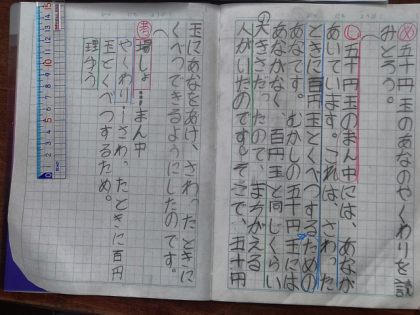 ㋱五十円玉のあなのやくわりを読
みとろう。
㋛五十円玉のまん中には、あなが
あいています。これは、さわった
ときに百円玉とくべつするための
あなです。むかしの五十円玉には
あながなく、百円玉と同じくらい
の大きさだったので、まちがえる
人がいたのです。そこで、五十円
玉にあなをあけ、さわったときに
くべつできるようにしたのです。
㋕場しょ…まん中
やくわり…さわったときに百円
玉とくべつするため。
理ゆう